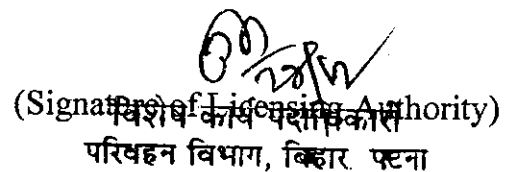 (Signature) of Licensing Authority)
विशेष कार्य पदाधिकारी
परिवहन विभाग, बिहार पटना